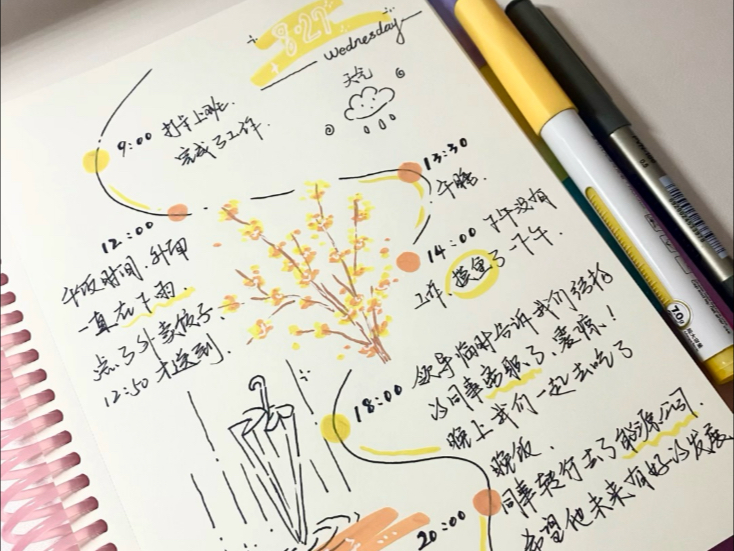 8.27
Wednesday
天气
9:00 打卡上班.
完成了工作.
13:30
午睡.
12:00
午饭时间.外面
一直在下雨.
点了外卖
12:50 才送到.
14:00 下午没有
工作.摸鱼了一下午.
18:00 领导临时告诉我们结构
的同事离职了.震惊!
晚上我们一起去吃了
晚饭.
同事转行去了能源公司.
希望他未来有好的发展
20:00
0.5